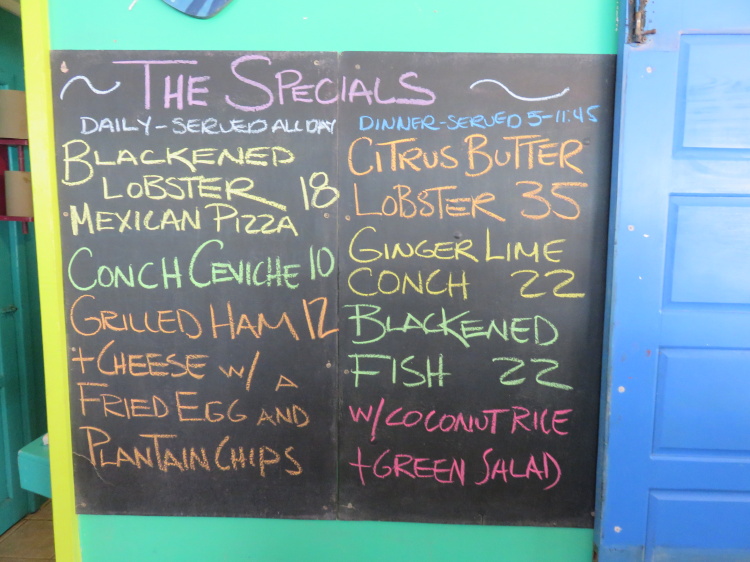 ~ THE SPECIALS ~
DAILY-SERVED ALL DAY
BLACKENED
LOBSTER 18
MEXICAN PIZZA
CONCH CEVICHE 10
GRILLED HAM 12
+CHEESE W/ A
FRIED EGG AND
PLANTAIN CHIPS
DINNER-SERVED 5-11:45
CITRUS BUTTER
LOBSTER 35
GINGER LIME
CONCH 22
BLACKENED
FISH 22
W/COCONUT RICE
+GREEN SALAD